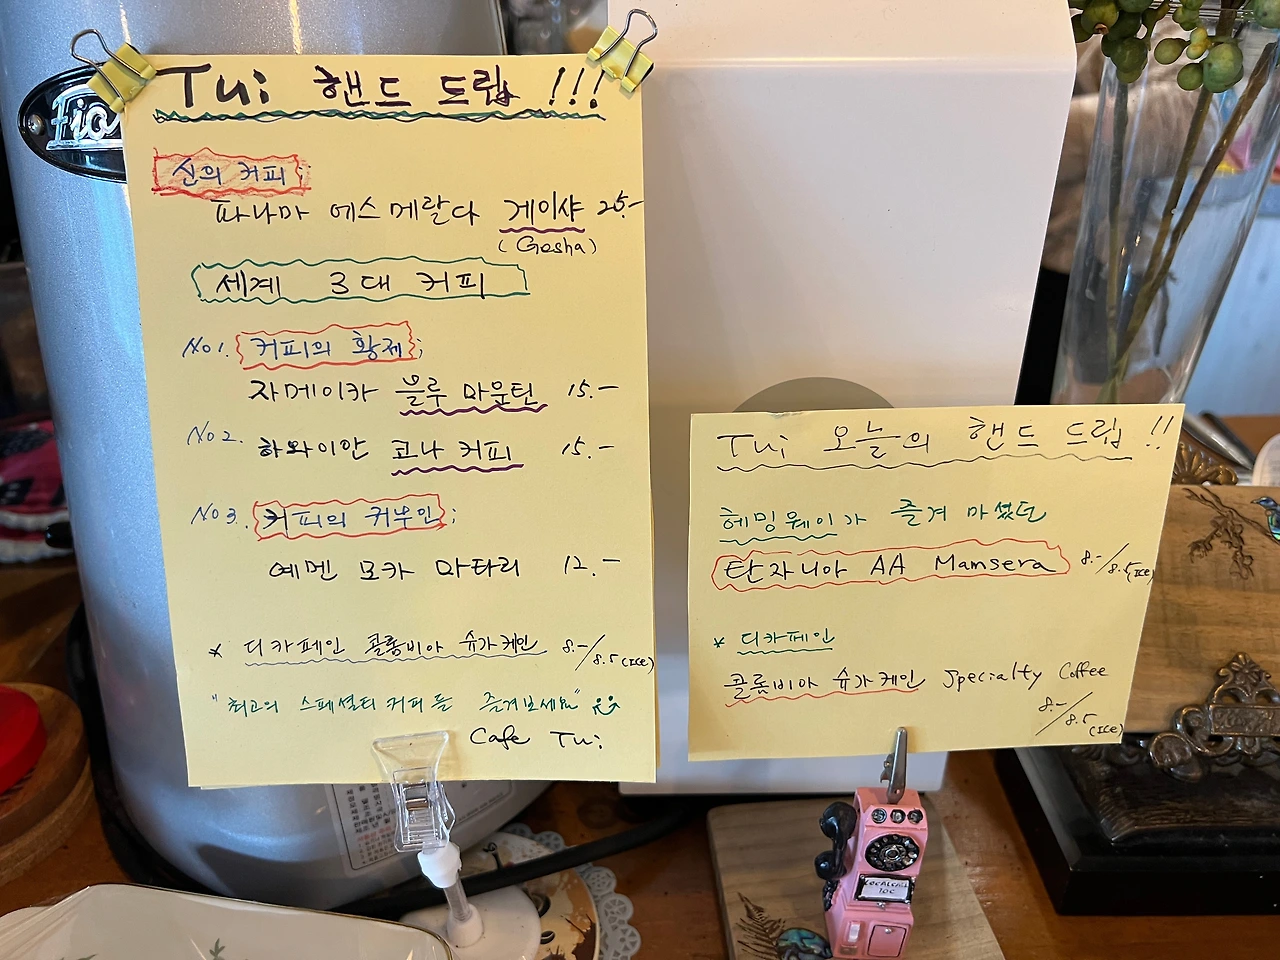 Tui 핸드 드립 !!!
신의 커피;
파나마 에스메랄다 게이샤 25.-
(Gesha)
세계 3대 커피
No 1. 커피의 황제;
자메이카 블루 마운틴 15.-
No 2. 하와이안 코나 커피 15.-
No 3. 커피의 귀부인;
예멘 모카 마타리 12.-
* 디카페인 콜롬비아 슈가케인 8.-/8.5 (ICE)
"최고의 스페셜티 커피를 즐겨보세요"
Cafe Tui
Tui 오늘의 핸드 드립 !!
헤밍웨이가 즐겨 마셨던
탄자니아 AA Mamsera 8.-/8.5 (ICE)
* 디카페인
콜롬비아 슈가케인 Specialty Coffee
8.-/8.5 (ICE)
Fio